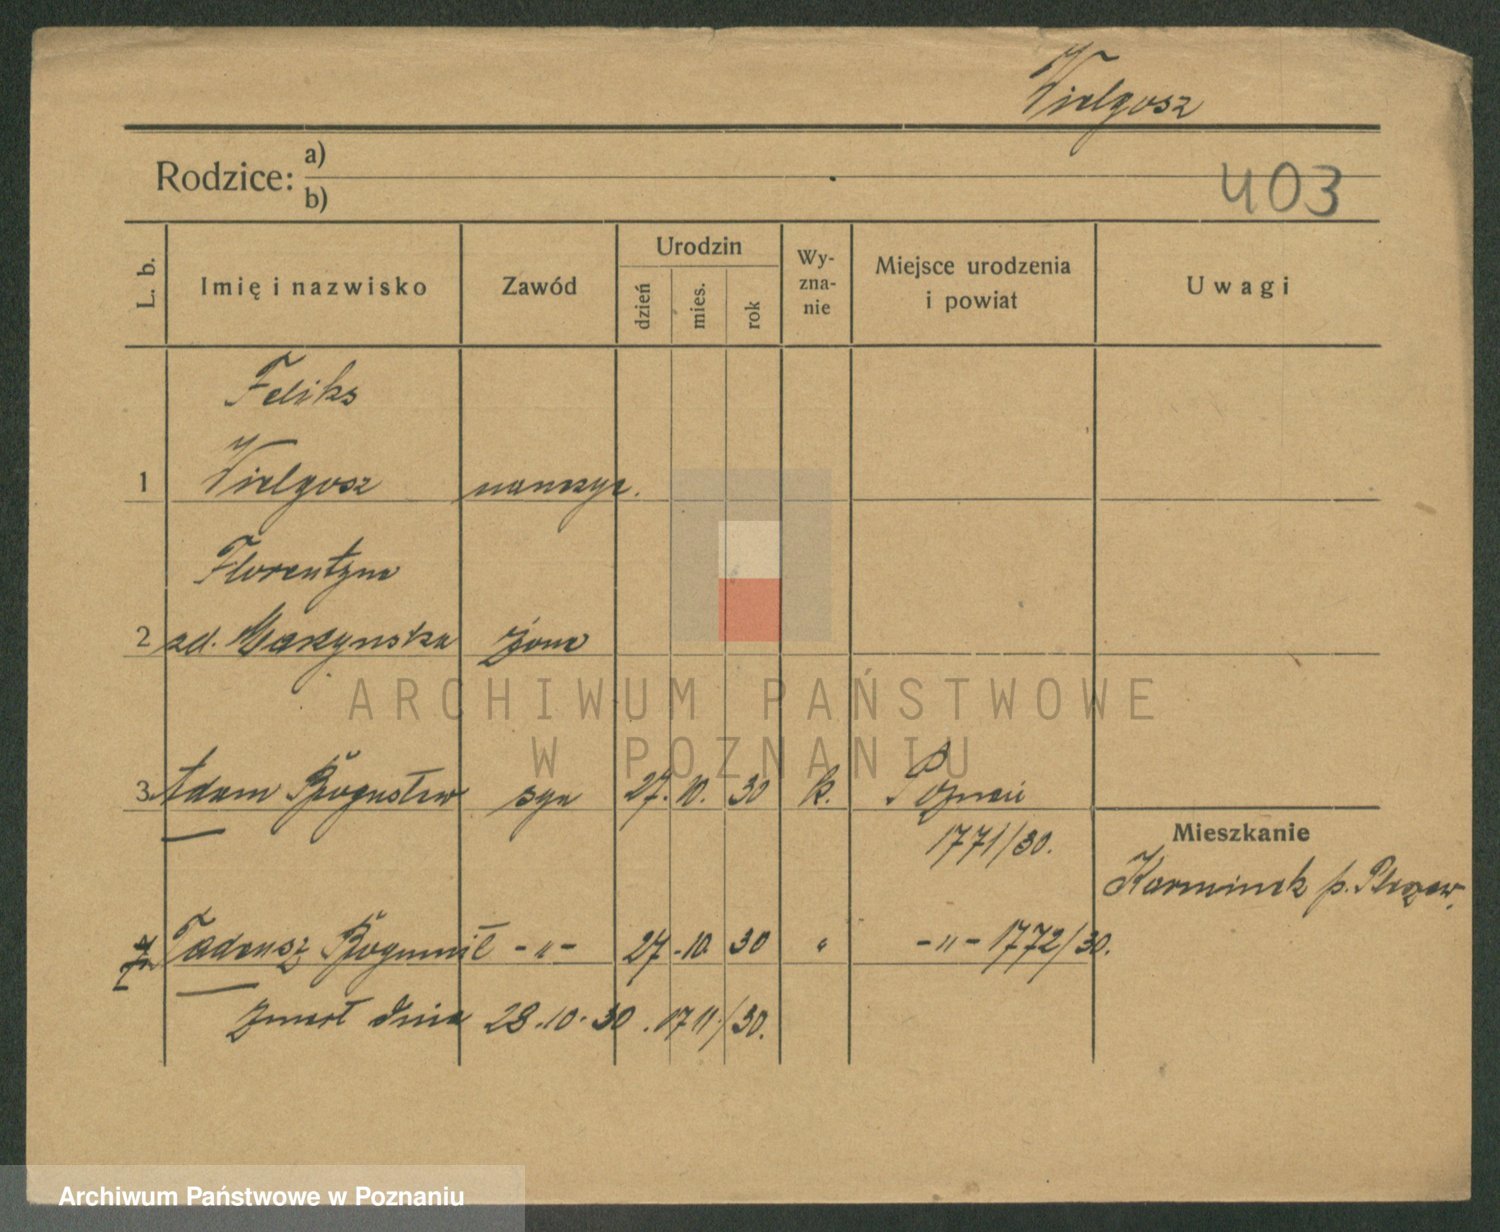 Wielgosz
Rodzice: a)
b)
403
L. b.
Imię i nazwisko
Zawód
Urodzin
dzień
mies.
rok
Wy-
zna-
nie
Miejsce urodzenia
i powiat
Uwagi
Feliks
1 Wielgosz nauczyc.
Florentyna
2 zd. żona
3 Adam Bogusław syn 27. 10. 30 k. Poznań
1771/30.
Mieszkanie
Karminek p. Pleszew.
Tadeusz Bogumił -"- 27. 10. 30 " -"- 1772/30.
zmarł dnia 28.10.30. 1711/30.
ARCHIWUM PAŃSTWOWE
W POZNANIU
Archiwum Państwowe w Poznaniu